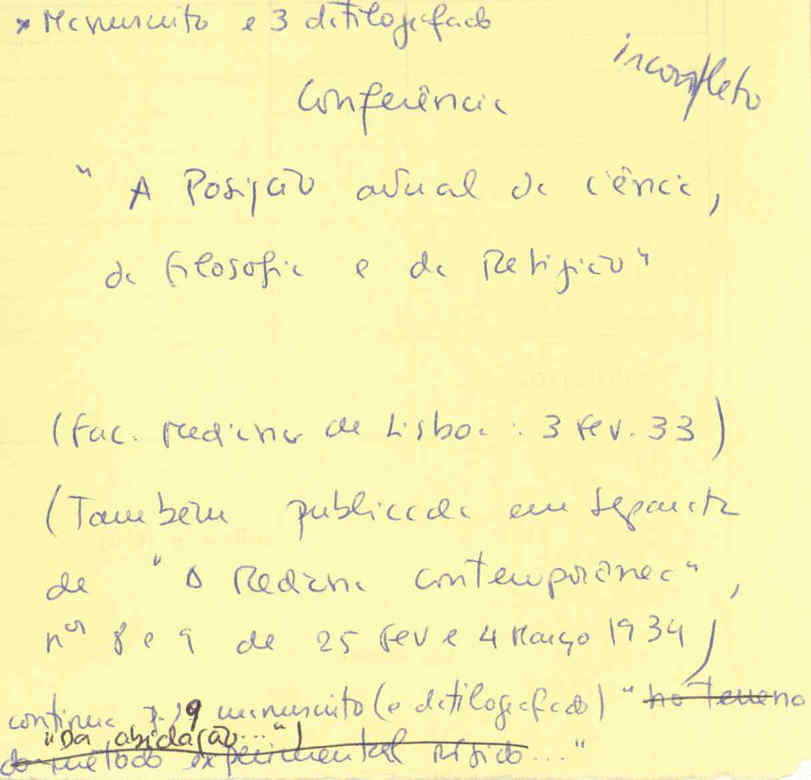 * Manuscrito e 3 datilografado
incompleto
Conferência
"A Posição actual da ciência,
da filosofia e da Religião"
(Fac. Medicina de Lisboa : 3 Fev. 33)
(Também publicada em separata
de "A Medicina Contemporânea",
nºs 8 e 9 de 25 Fev e 4 Março 1934)
continua 9 manuscrito (e datilografado) "no terreno
"Da abjdação..."
do método experimental rígido..."